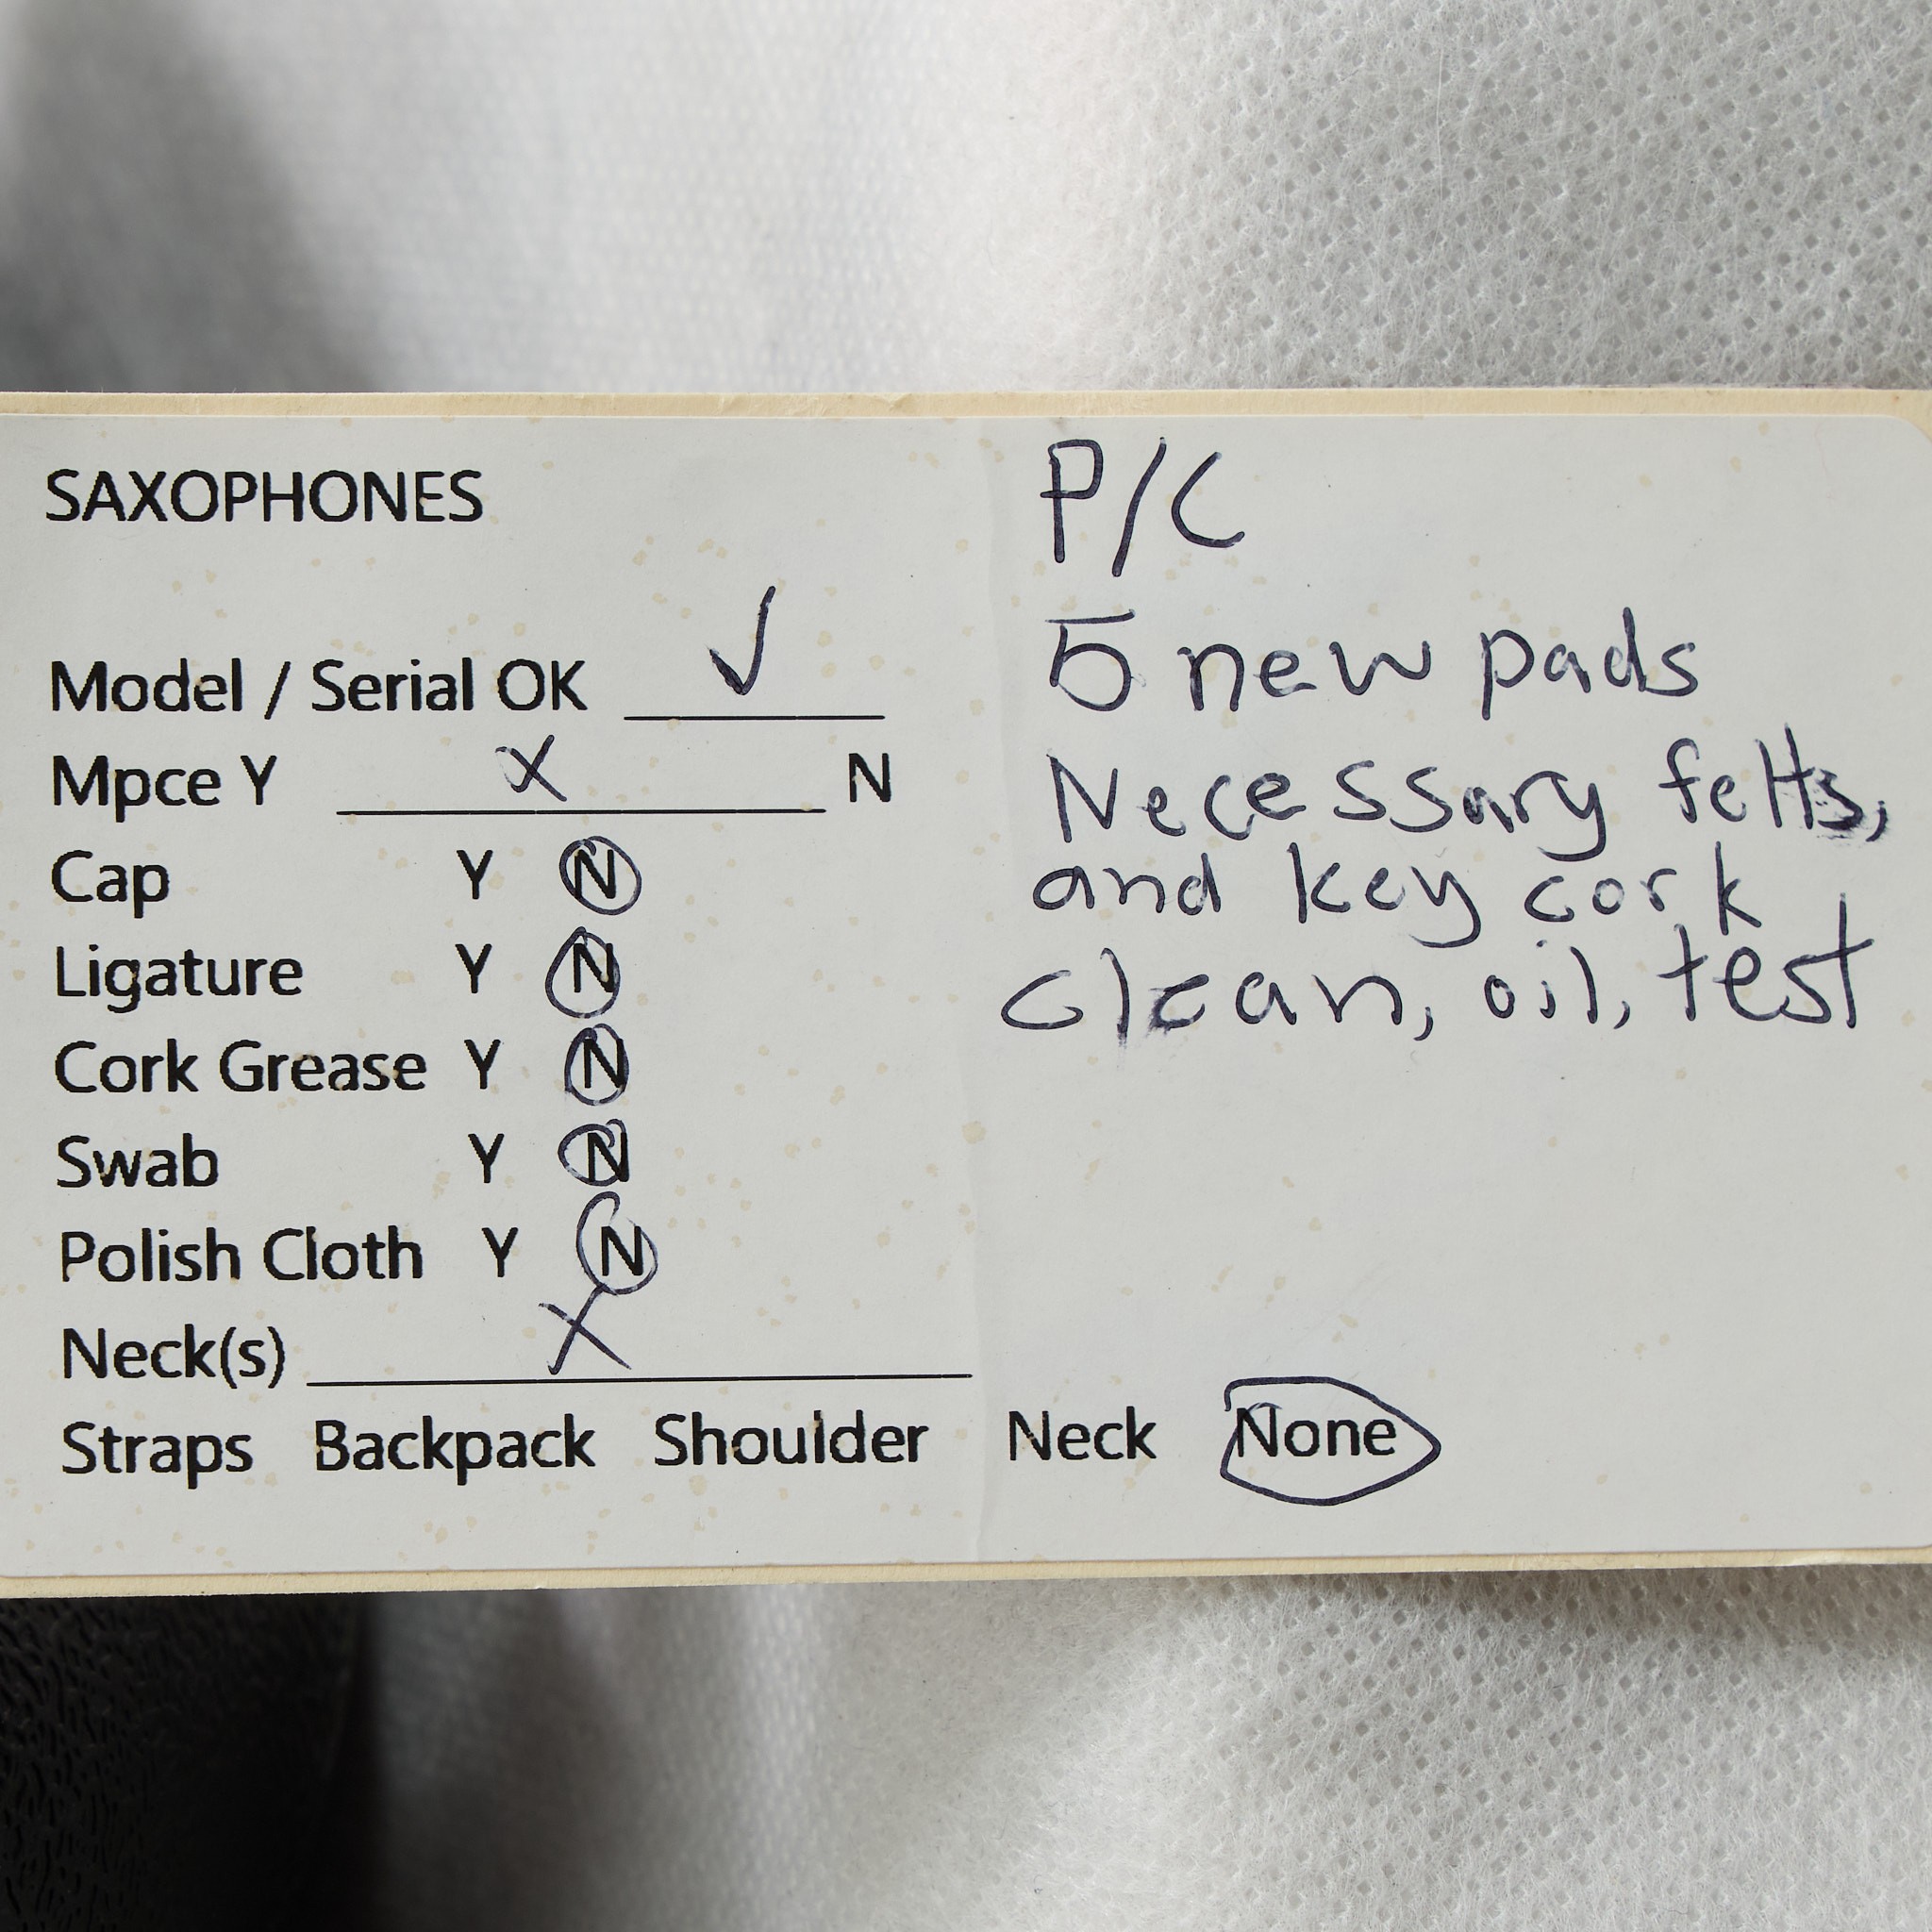 SAXOPHONES
Model / Serial OK ✓
Mpce Y X N
Cap Y N
Ligature Y N
Cork Grease Y N
Swab Y N
Polish Cloth Y N
Neck(s) X
Straps Backpack Shoulder Neck None
P/C
5 new pads
Necessary felts,
and key cork
clean, oil, test